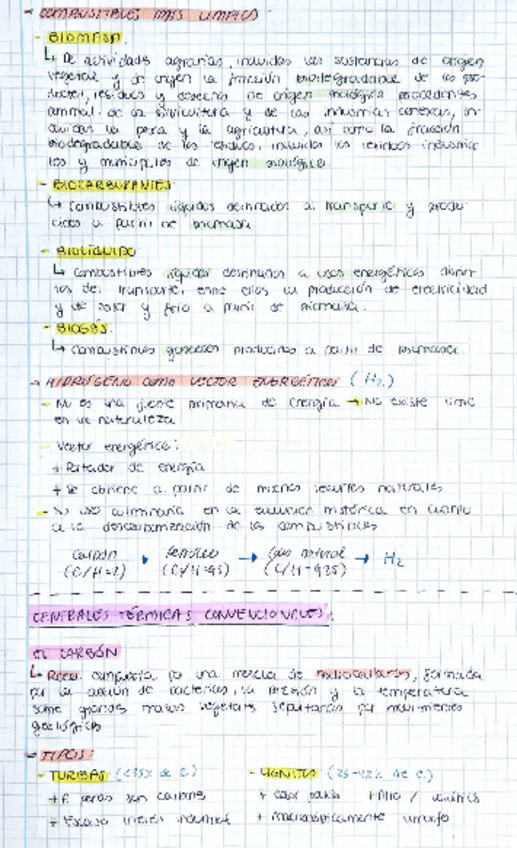 → COMBUSTIBLES MÁS LIMPIOS
- BIOMASA.
↳ De actividades agrarias, incluidas las sustancias de origen
vegetal y de origen la fracción biodegradable de los pro-
ductos, residuos y desechos de origen biológico procedentes
animal, de la silvicultura y de las industrias conexas, in-
cluidas la pesca y la agricultura, así como la fracción
biodegradable de los residuos, incluidos los residuos industria
les y municipales de origen biológico.
- BIOCARBURANTES
↳ Combustibles líquidos destinados al transporte y produ-
cidos a partir de biomasa
- BIOLÍQUIDO
↳ Combustibles líquidos destinados a usos energéticos distin-
tos del transporte, entre ellos la producción de electricidad
y de calor y frío a partir de biomasa.
- BIOGÁS.
↳ Combustibles gaseosos producidos a partir de biomasa.
→ HIDRÓGENO COMO VECTOR ENERGÉTICO (H₂)
- No es una fuente primaria de energía → No existe libre
en la naturaleza
- Vector energético:
+ Portador de energía
+ Se obtiene a partir de recursos naturales
- Su uso culminaría en la evolución histórica en cuanto
a la descarbonización de los combustibles
Carbón → Petróleo → Gas natural → H₂
CENTRALES TÉRMICAS CONVENCIONALES.
EL CARBÓN
↳ Roca compuesta por una mezcla de hidrocarburos, formada
por la acción de bacterias, la presión y la temperatura
sobre grandes masas vegetales sepultadas por movimientos
geológicos
→ TIPOS:
- TURBAS - LIGNITOS
+ carbones + Color pardo
+ Escaso interés industrial + Macroscópicamente